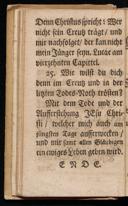 Denn Christus spricht: Wer
nicht sein Creutz trägt/ und
mir nachfolget/ der kan nicht
mein Jünger seyn. Lucae am
vierzehnten Capittel.
25. Wie wilst du dich
denn im Creutz und in der
letzten Todes-Noth trösten?
Mit dem Tode und der
Aufferstehung JEsu Chri-
sti/ welcher mich auch am
jüngsten Tage aufferwecken/
und mir samt allen Gläubigen
ein ewiges Leben geben wird.
E N D E.